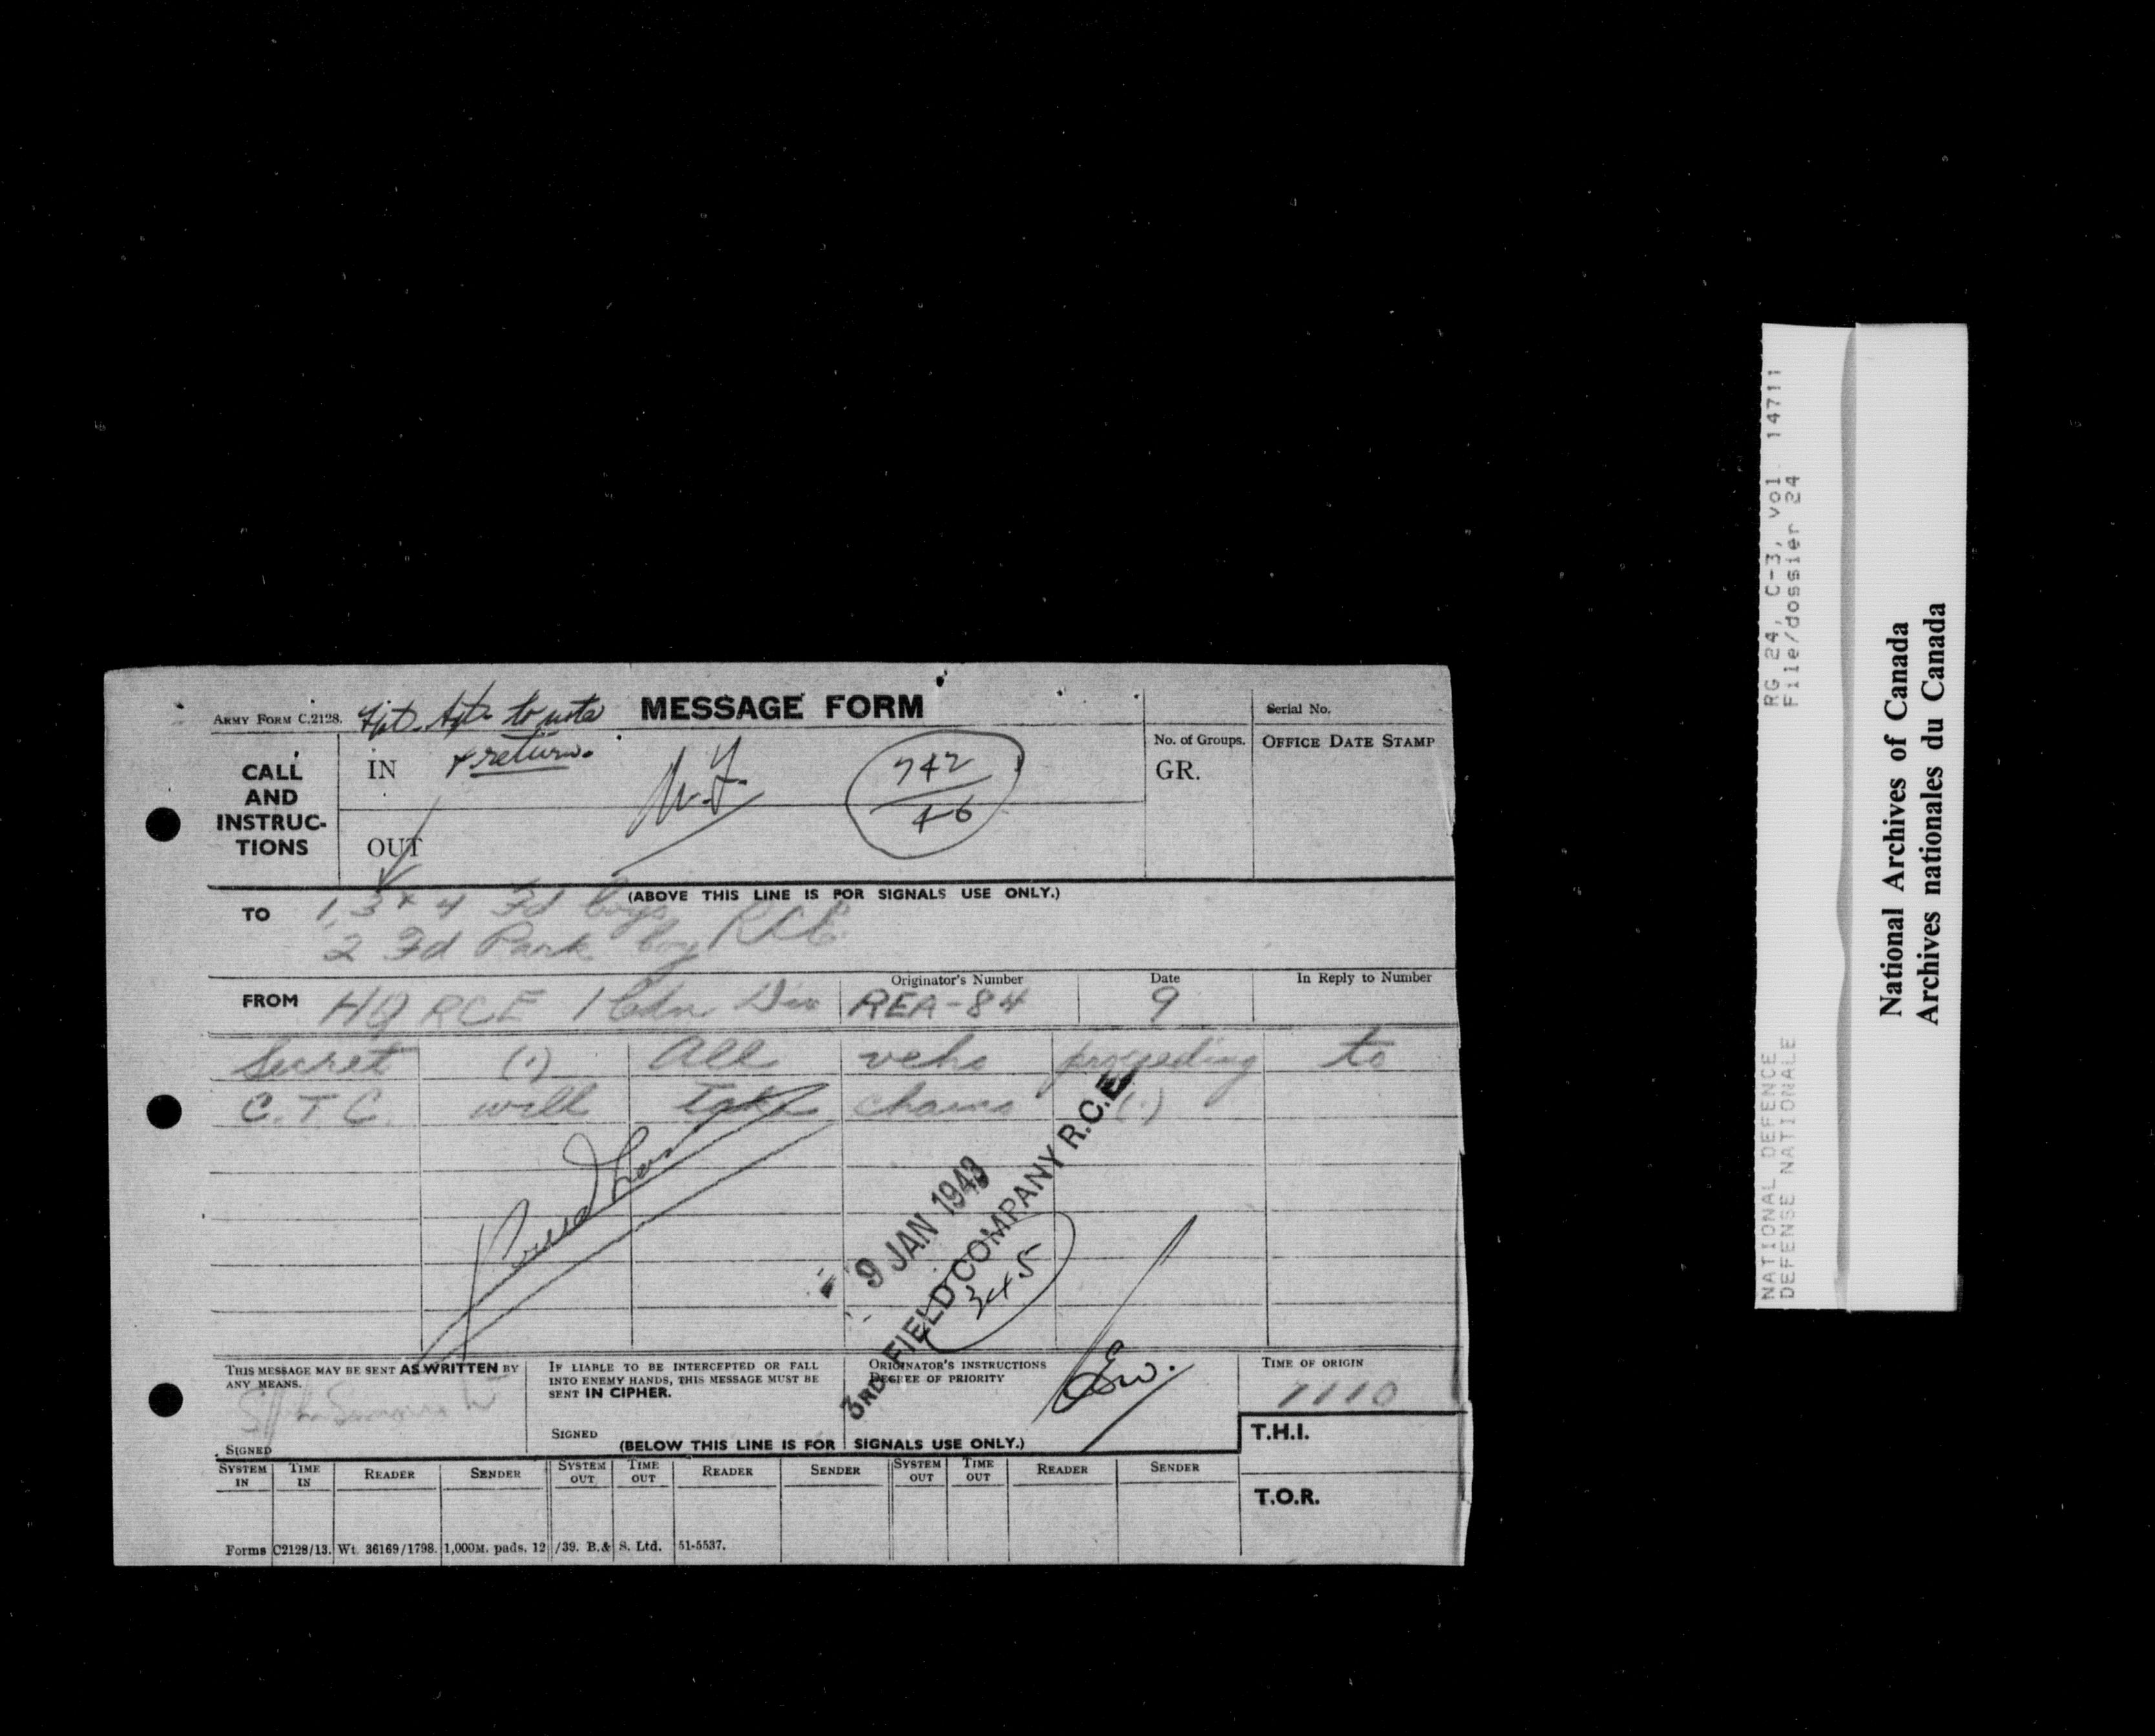 ARMY FORM C.2128. to note MESSAGE FORM Serial No.
& return.
No. of Groups. OFFICE DATE STAMP
CALL AND INSTRUC-TIONS
IN
GR.
742
46
OUT
(ABOVE THIS LINE IS FOR SIGNALS USE ONLY.)
TO 1, 3 & 4 Fd Coys RCE
2 Fd Park Coy
Originator's Number Date In Reply to Number
FROM HQ RCE 1 Cdn Div REA-84 9
Secret (.) All vehs proceeding to
C.T.C. will take chains (.)
9 JAN 1943
3RD FIELD COMPANY R.C.E.
345
THIS MESSAGE MAY BE SENT AS WRITTEN BY ANY MEANS.
SIGNED
IF LIABLE TO BE INTERCEPTED OR FALL INTO ENEMY HANDS, THIS MESSAGE MUST BE SENT IN CIPHER.
SIGNED
ORIGINATOR'S INSTRUCTIONS
DEGREE OF PRIORITY
TIME OF ORIGIN
1110
T.H.I.
(BELOW THIS LINE IS FOR SIGNALS USE ONLY.)
SYSTEM IN TIME IN READER SENDER SYSTEM OUT TIME OUT READER SENDER SYSTEM OUT TIME OUT READER SENDER
T.O.R.
Forms C2128/13. Wt. 36169/1798. 1,000M. pads. 12/39. B.& S. Ltd. 51-5537.
RG 24, C-3, vol. 14711
File/dossier 24
NATIONAL DEFENCE
DEFENSE NATIONALE
National Archives of Canada
Archives nationales du Canada